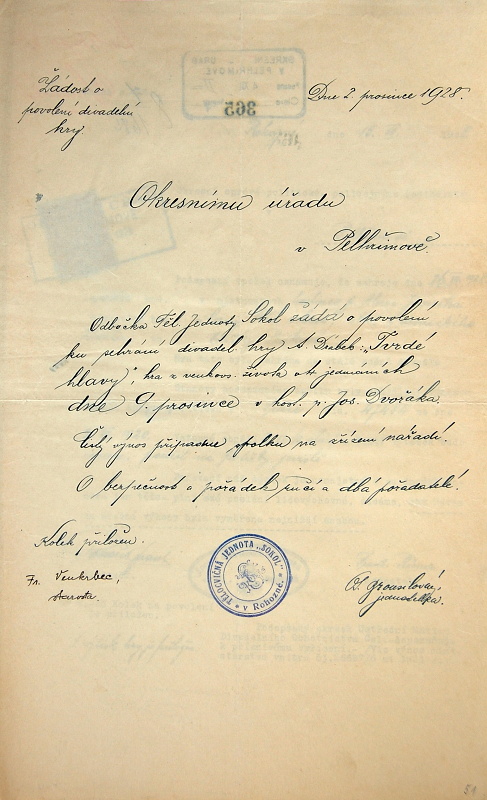 Žádost o
povolení divadelní
hry.
Dne 2. prosince 1928.
Okresnímu úřadu
v Pelhřimově.
Odbočka Těl. Jednoty Sokol žádá o povolení
ku sehrání divadel. hry A. Drábek: „Tvrdé
hlavy", hra z venkovs. života o 4 jednáních
dne 9. prosince v host. p. Jos. Dvořáka.
Čistý výnos připadne spolku na zřízení nářadí.
O bezpečnost a pořádek ručí a dbá pořadatel.
Kolek přiložen.
Fr.
starosta.
TĚLOCVIČNÁ JEDNOTA „SOKOL"
v Rohozné.
jednatelka.
365
51